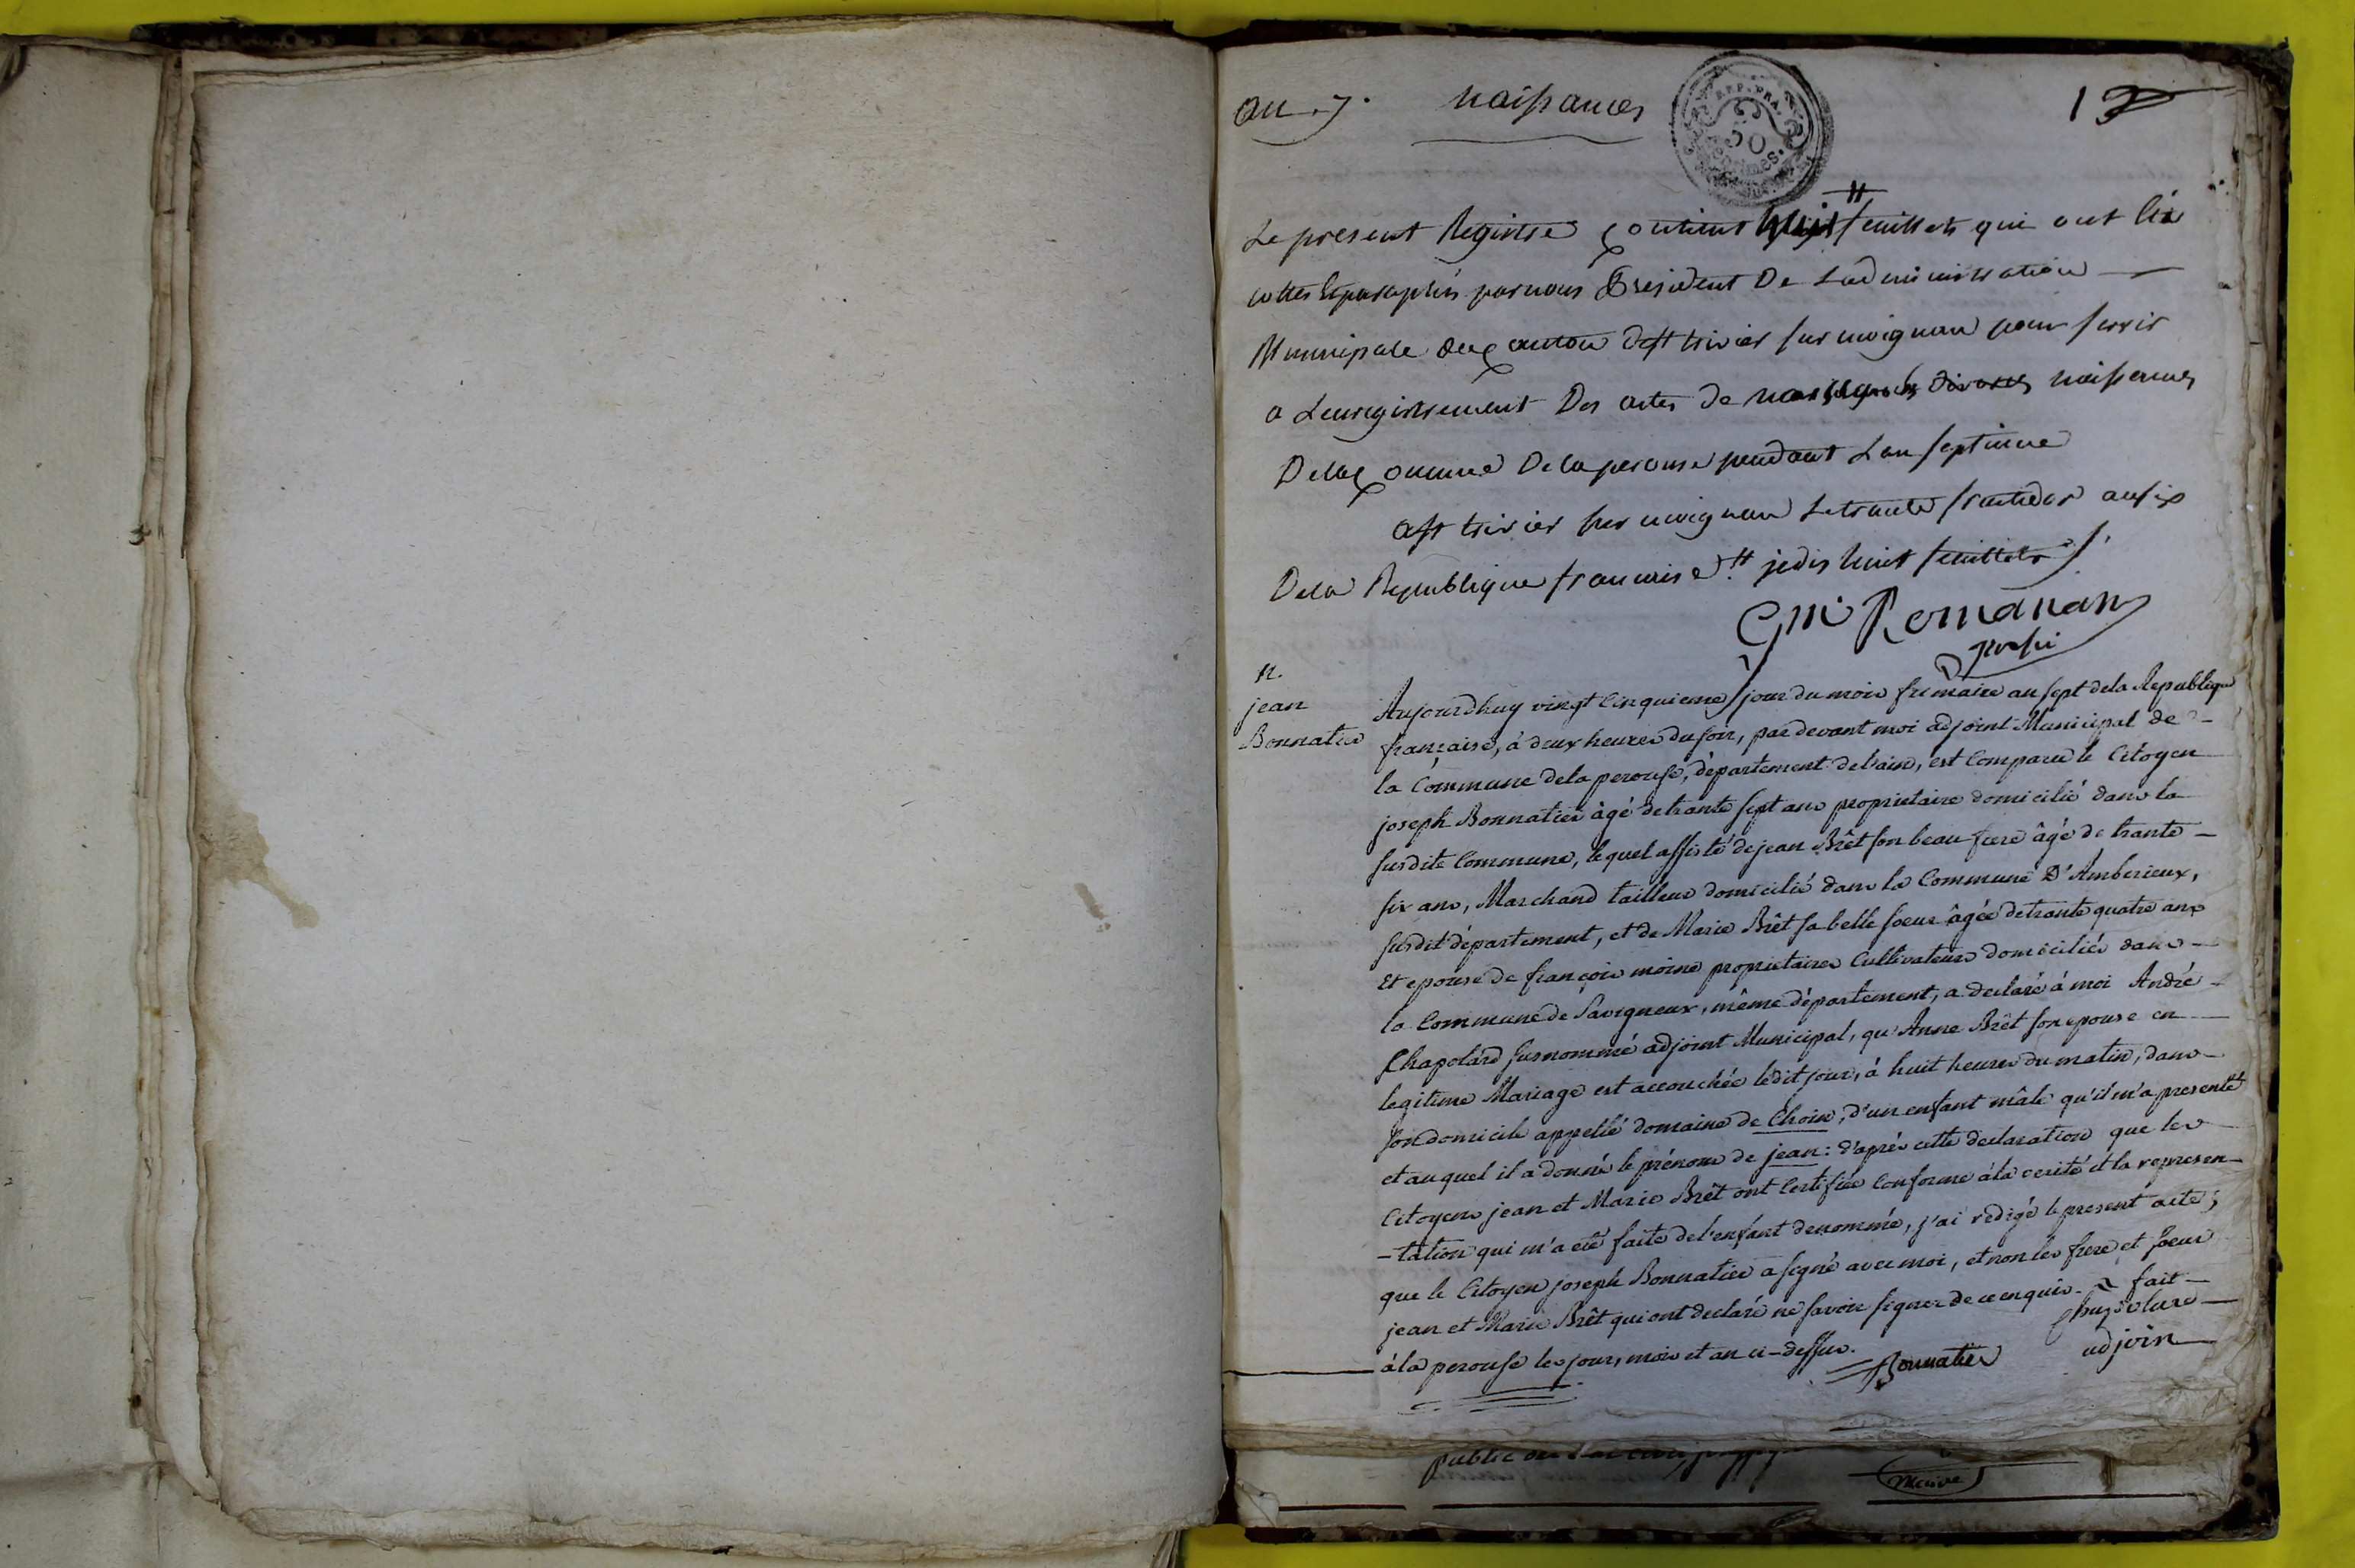 an 7. naissances
1
REP. FRA.
50
centimes.
Le present Registre Contient huit # feuillets qui ont été
cottés Et paraphés par nous President De Ladministration
Municipale du Canton de St trivier sur moignan pour servir
a Lenregistrement Des actes de naissances
De la Commune De la perouse pendant L'an septieme
a St trivier sur moignan Le trante fructidor an six
De la Republique francaise # jedis huit feuillets /.
Romanans
presi
N.
jean
Bonnatier
Aujourdhuy vingt cinquieme jour du mois frimaire an sept de la Republique
française, à deux heures du soir, par devant moi adjoint Municipal de
la Commune de la perouse, département de l'ain, est comparu le Citoyen
joseph Bonnatier âgé de trante sept ans proprietaire domicilié dans la
susdite Commune, lequel assisté de jean Brêt son beau frere âgé de trante
six ans, Marchand tailleur domicilié dans la Commune D'Amberieux,
susdit département, et de Marie Brêt sa belle soeur âgée de trante quatre ans
et epouse de françois moine proprietaires Cultivateurs domiciliés dans
la Commune de Savigneux, même département, a declaré à moi André
Chapolard susnommé adjoint Municipal, qu'Anne Brêt son epouse en
legitime Mariage est accouchée ledit jour, à huit heures du matin, dans
son domicile appellé domaine de Choin, d'un enfant mâle qu'il m'a presenté
et au quel il a donné le prénom de jean: d'après cette declaration que les
Citoyens jean et Marie Brêt ont Certifiée Conforme à la verité et la represen-
-tation qui m'a eté faite de l'enfant denommé, j'ai redigé le present acte;
que le Citoyen joseph Bonnatier a signé avec moi, et non les frere et soeur
jean et Marie Brêt qui ont declaré ne savoir signer de ce enquis. fait
à la perouse les jour, mois et an ci-dessus.
Bonnatier
adjoin
public
Maire